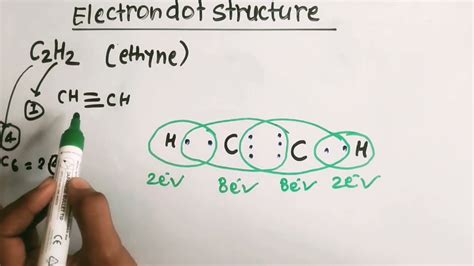 Electron dot structure
C₂H₂ (ethyne)
① CH≡CH
④
H C C H
C6 = 2
2eV 8eV 8eV 2eV